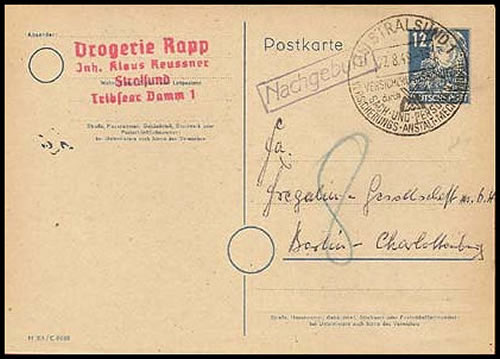 Absender:
Drogerie Rapp
Inh. Klaus Reussner
Stralsund
Tribseer Damm 1
Straße, Hausnummer, Gebäudeteil, Stockwerk oder
Postschließfachnummer;
bei Untermietern auch Name des Vermieters
Postkarte
Nachgebühr
STRALSUND 1
VERSICHERUNG
SACH- UND PERSONEN
VERSICHERUNGS-ANSTALT
12
DEUTSCHE POST
8
Fa.
Gesellschaft m.b.H
Berlin-Charlottenburg
Straße, Hausnummer, Gebäudeteil, Stockwerk oder Postschließfachnummer;
bei Untermietern auch Name des Vermieters